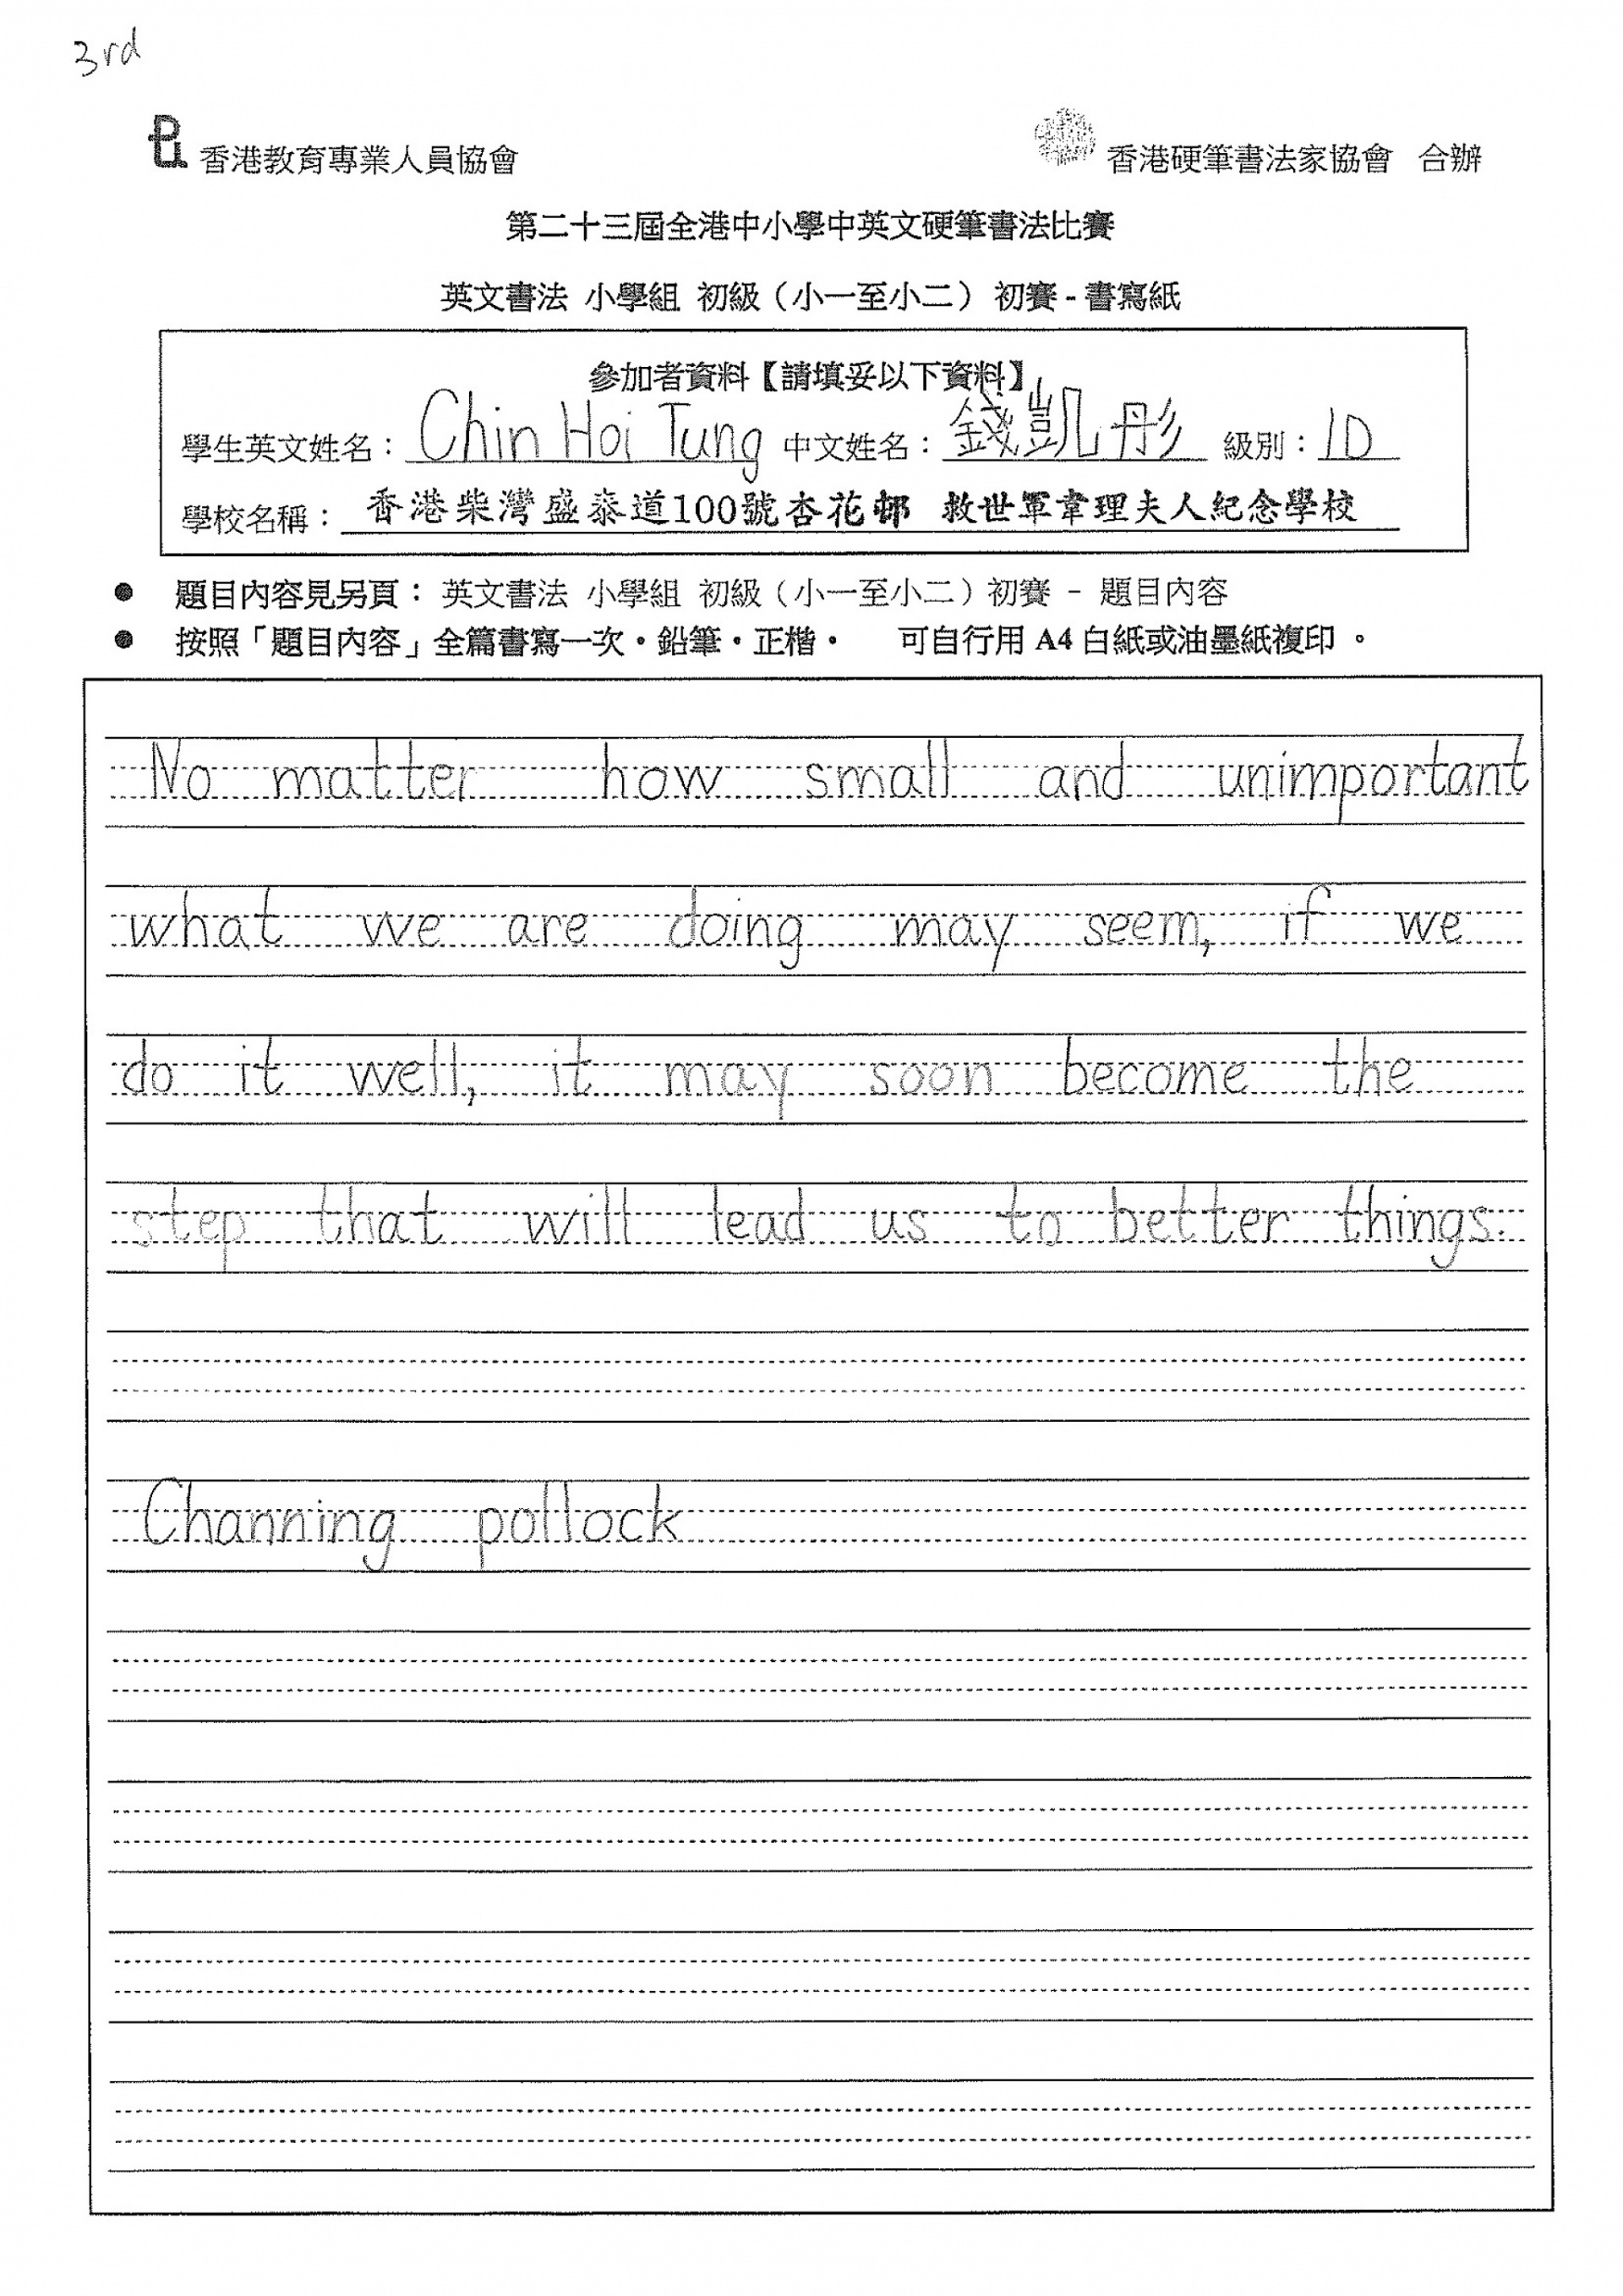 3rd
香港教育專業人員協會 香港硬筆書法家協會 合辦
第二十三屆全港中小學中英文硬筆書法比賽
英文書法 小學組 初級（小一至小二） 初賽 - 書寫紙
參加者資料【請填妥以下資料】
學生英文姓名： Chin Hoi Tung 中文姓名： 錢凱彤 級別： 1D
學校名稱： 香港柴灣盛泰道100號杏花邨 救世軍韋理夫人紀念學校
● 題目內容見另頁： 英文書法 小學組 初級（小一至小二）初賽 - 題目內容
● 按照「題目內容」全篇書寫一次・鉛筆・正楷・ 可自行用 A4 白紙或油墨紙複印 。
No matter how small and unimportant
what we are doing may seem, if we
do it well, it may soon become the
step that will lead us to better things.
Channing pollock